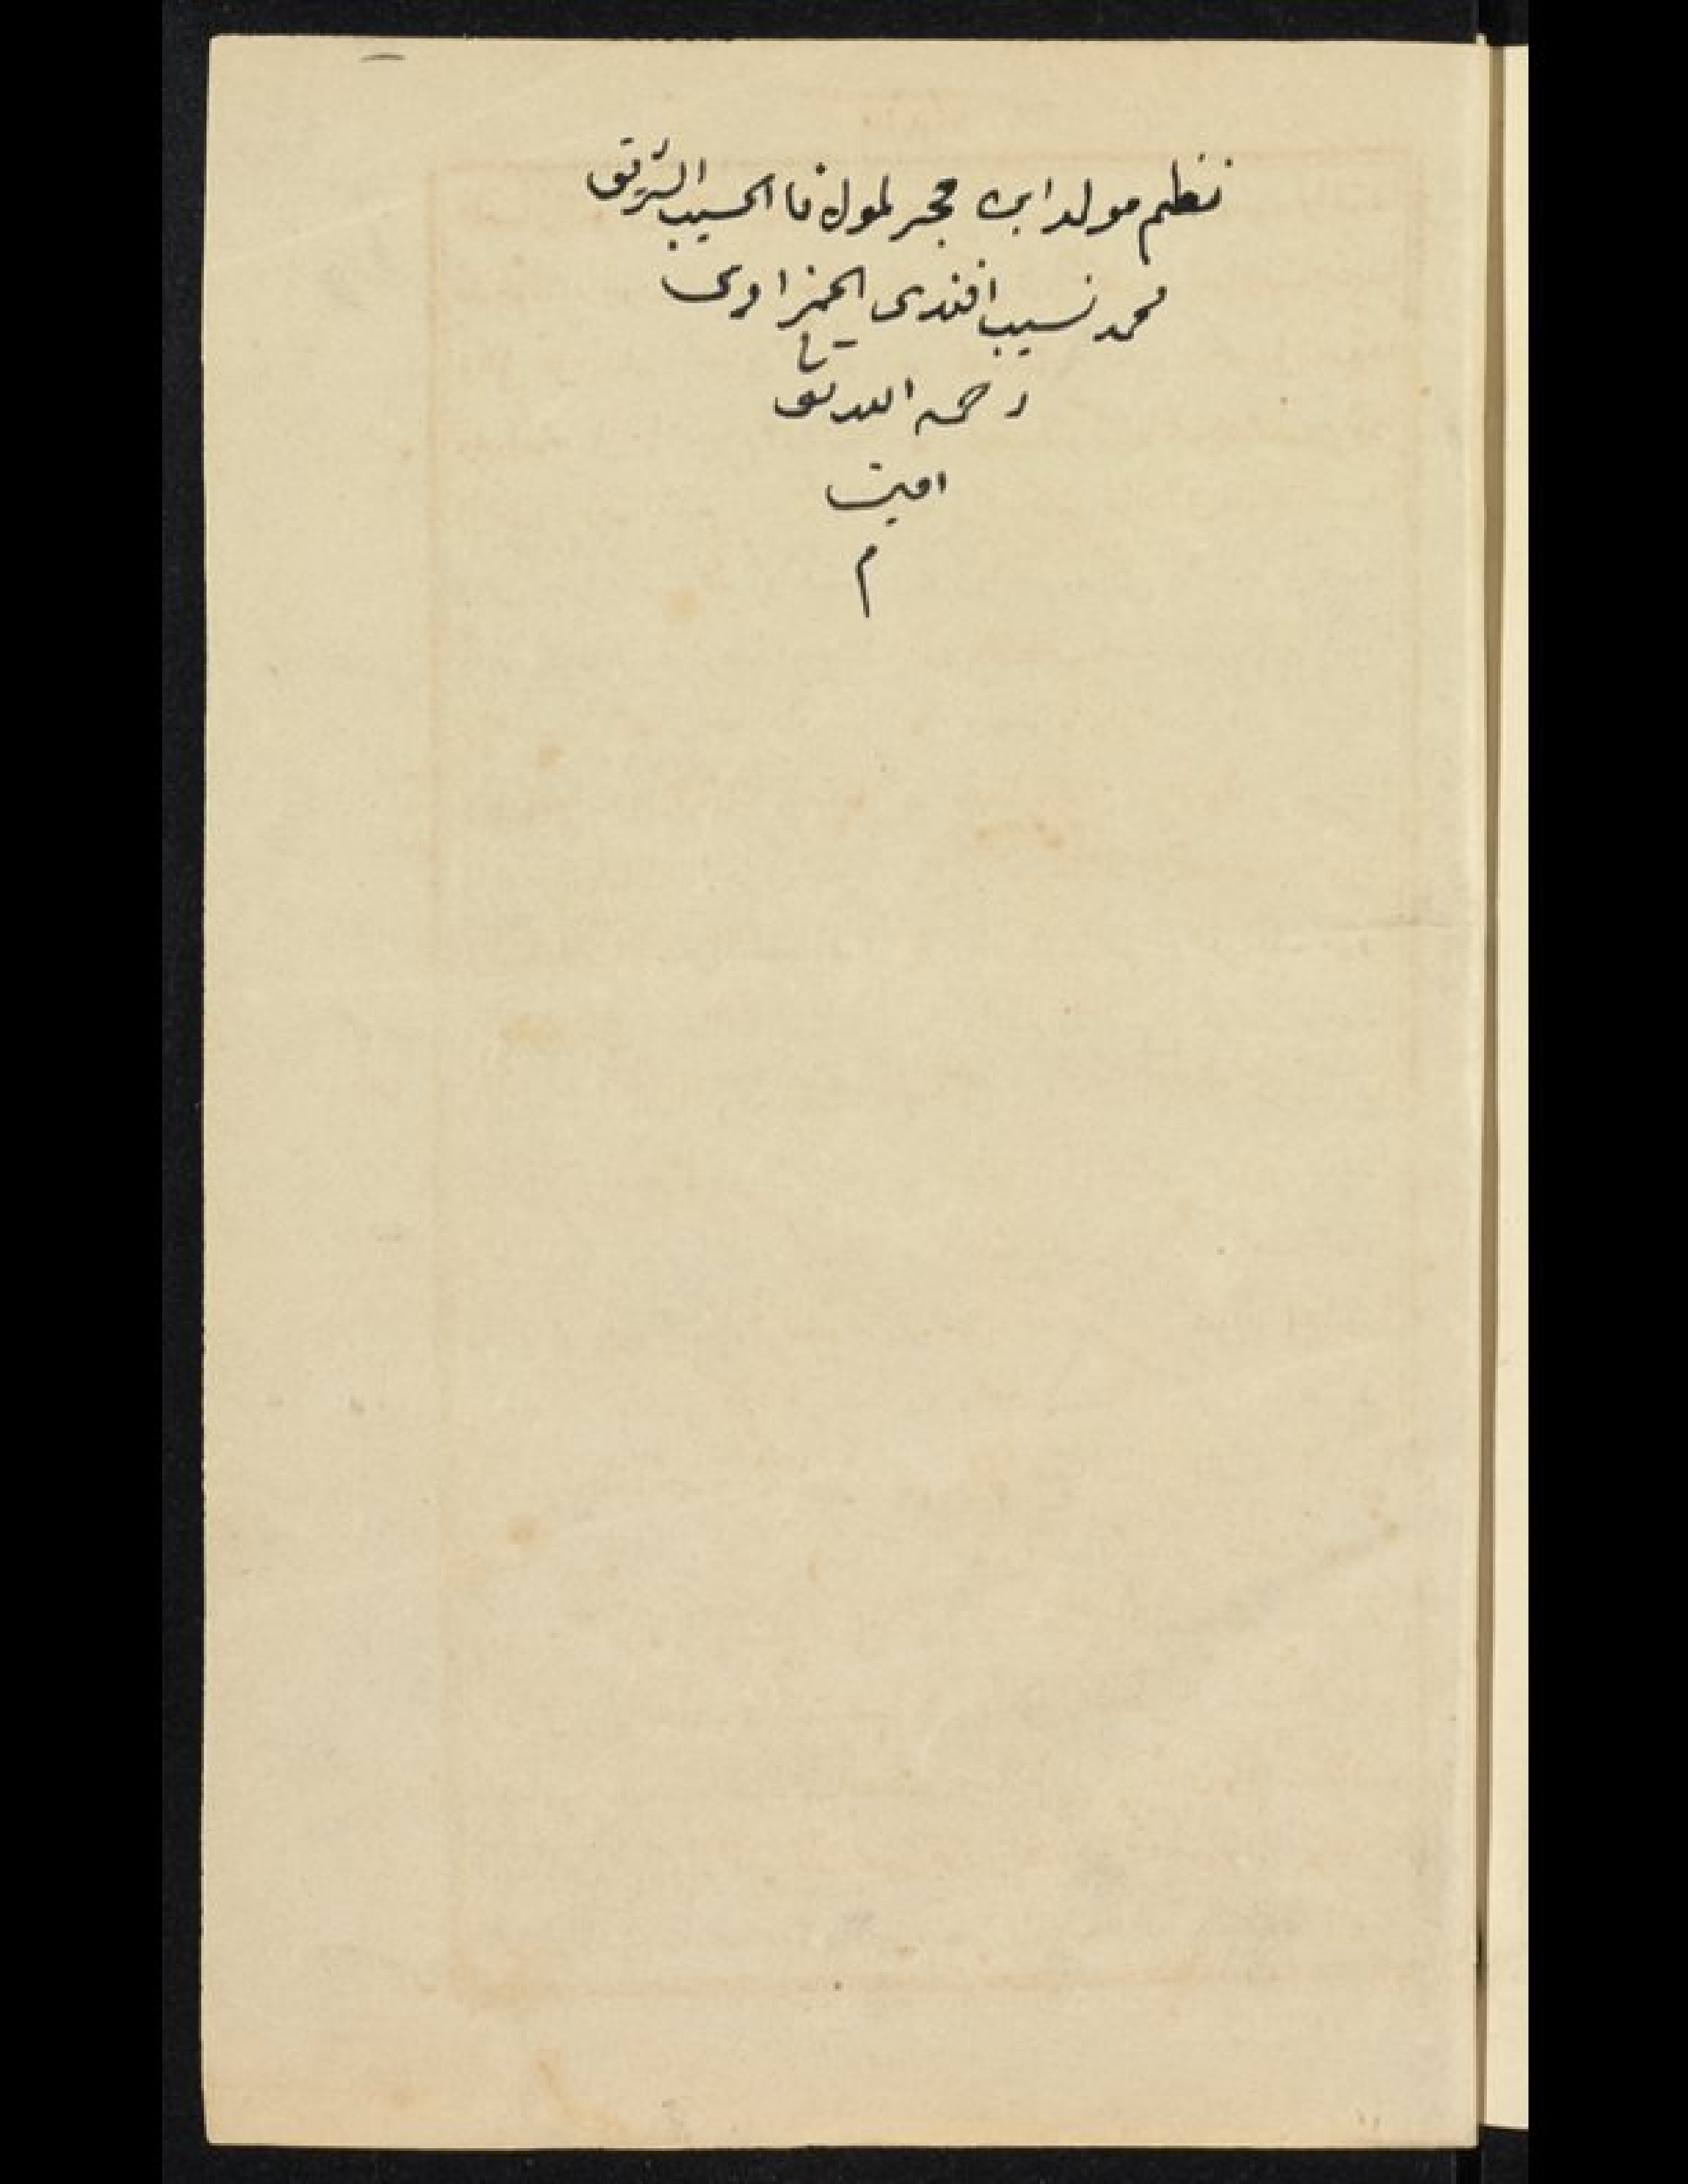 نظم مولد ابن حجر لمولانا الحسيب
محمد نسيب افندى الحمزاوى
رحمه الله تعالى
امين
م